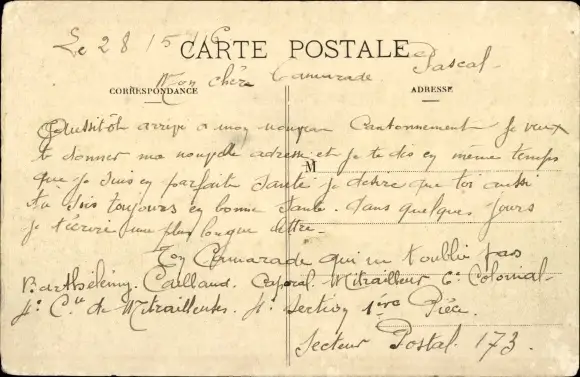 Le 28/5/16
CARTE POSTALE
Mon chère Camarade Pascal
CORRESPONDANCE
ADRESSE
M
Aussitôt arrivé a mon nouveau Cantonnement je veux
te donner ma nouvelle adresse et je te dis en même temps
que je suis en parfaite santé je désire que toi aussi
tu sois toujours en bonne santé. dans quelques jours
je t'écrirai une plus longue lettre.
Ton Camarade qui ne t'oublie pas
Barthélémy. Cailland. Caporal. Mitrailleur 6e Colonial.
4e Cie de Mitrailleuses. 4e Section 1ère Pièce.
Secteur Postal. 173.